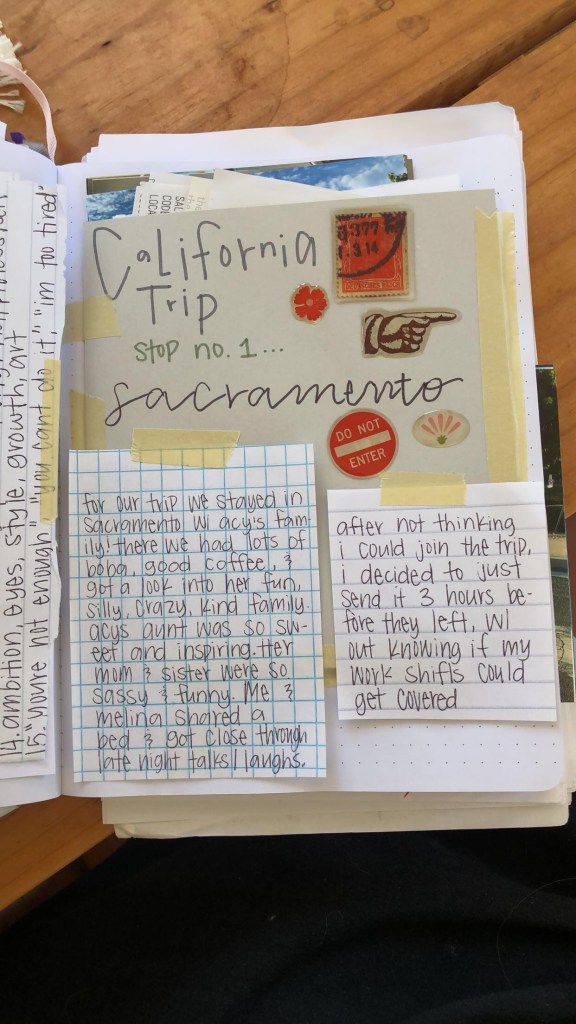 14. ambition, eyes, style, growth, art
15. "you're not enough" "you cant do it," "im too tired"
SAL
CODE
LOCA
California
Trip
stop no. 1...
sacramento
3377
1.3.14
DO NOT
ENTER
for our trip we stayed in
Sacramento w/ acy's fam-
ily! there we had lots of
boba, good coffee, &
got a look into her fun,
silly, crazy, kind family.
acys aunt was so sw-
eet and inspiring. Her
mom & sister were so
sassy & funny. Me &
melina shared a
bed & got close through
late night talks/laughs.
after not thinking
i could join the trip,
i decided to just
send it 3 hours be-
fore they left, w/
out knowing if my
work shifts could
get covered